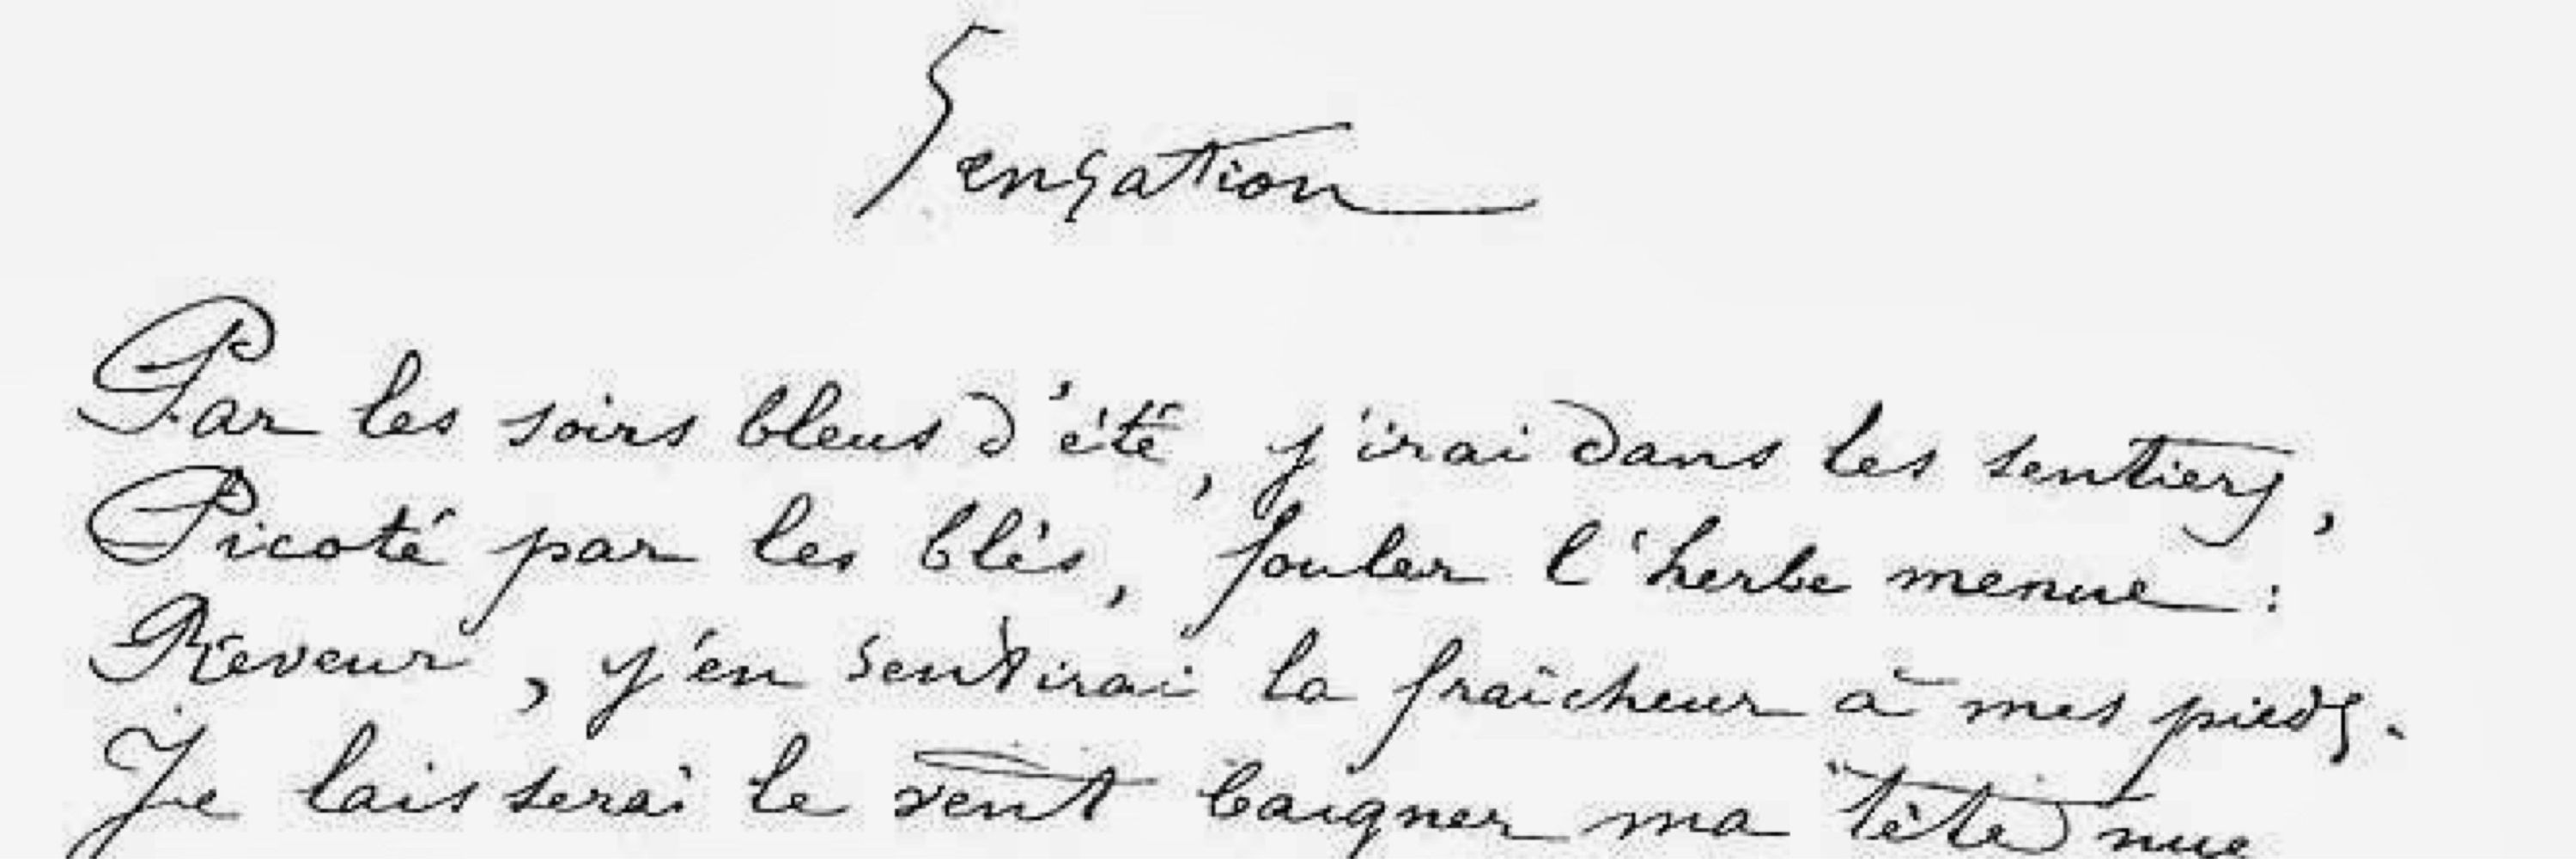 Sensation
Par les soirs bleus d'été, j'irai dans les sentiers,
Picoté par les blés, fouler l'herbe menue :
Rêveur, j'en sentirai la fraîcheur à mes pieds.
Je laisserai le vent baigner ma tête nue